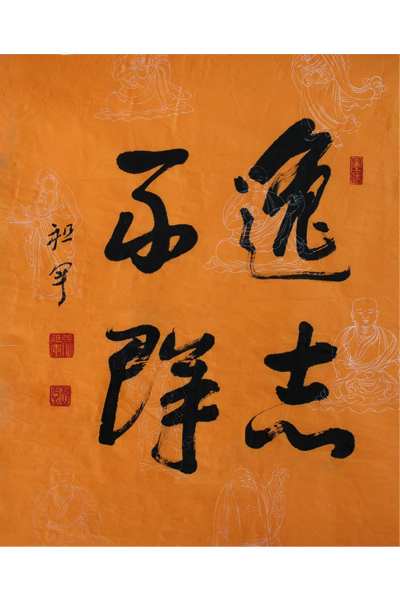 逸志
不群
祖軍